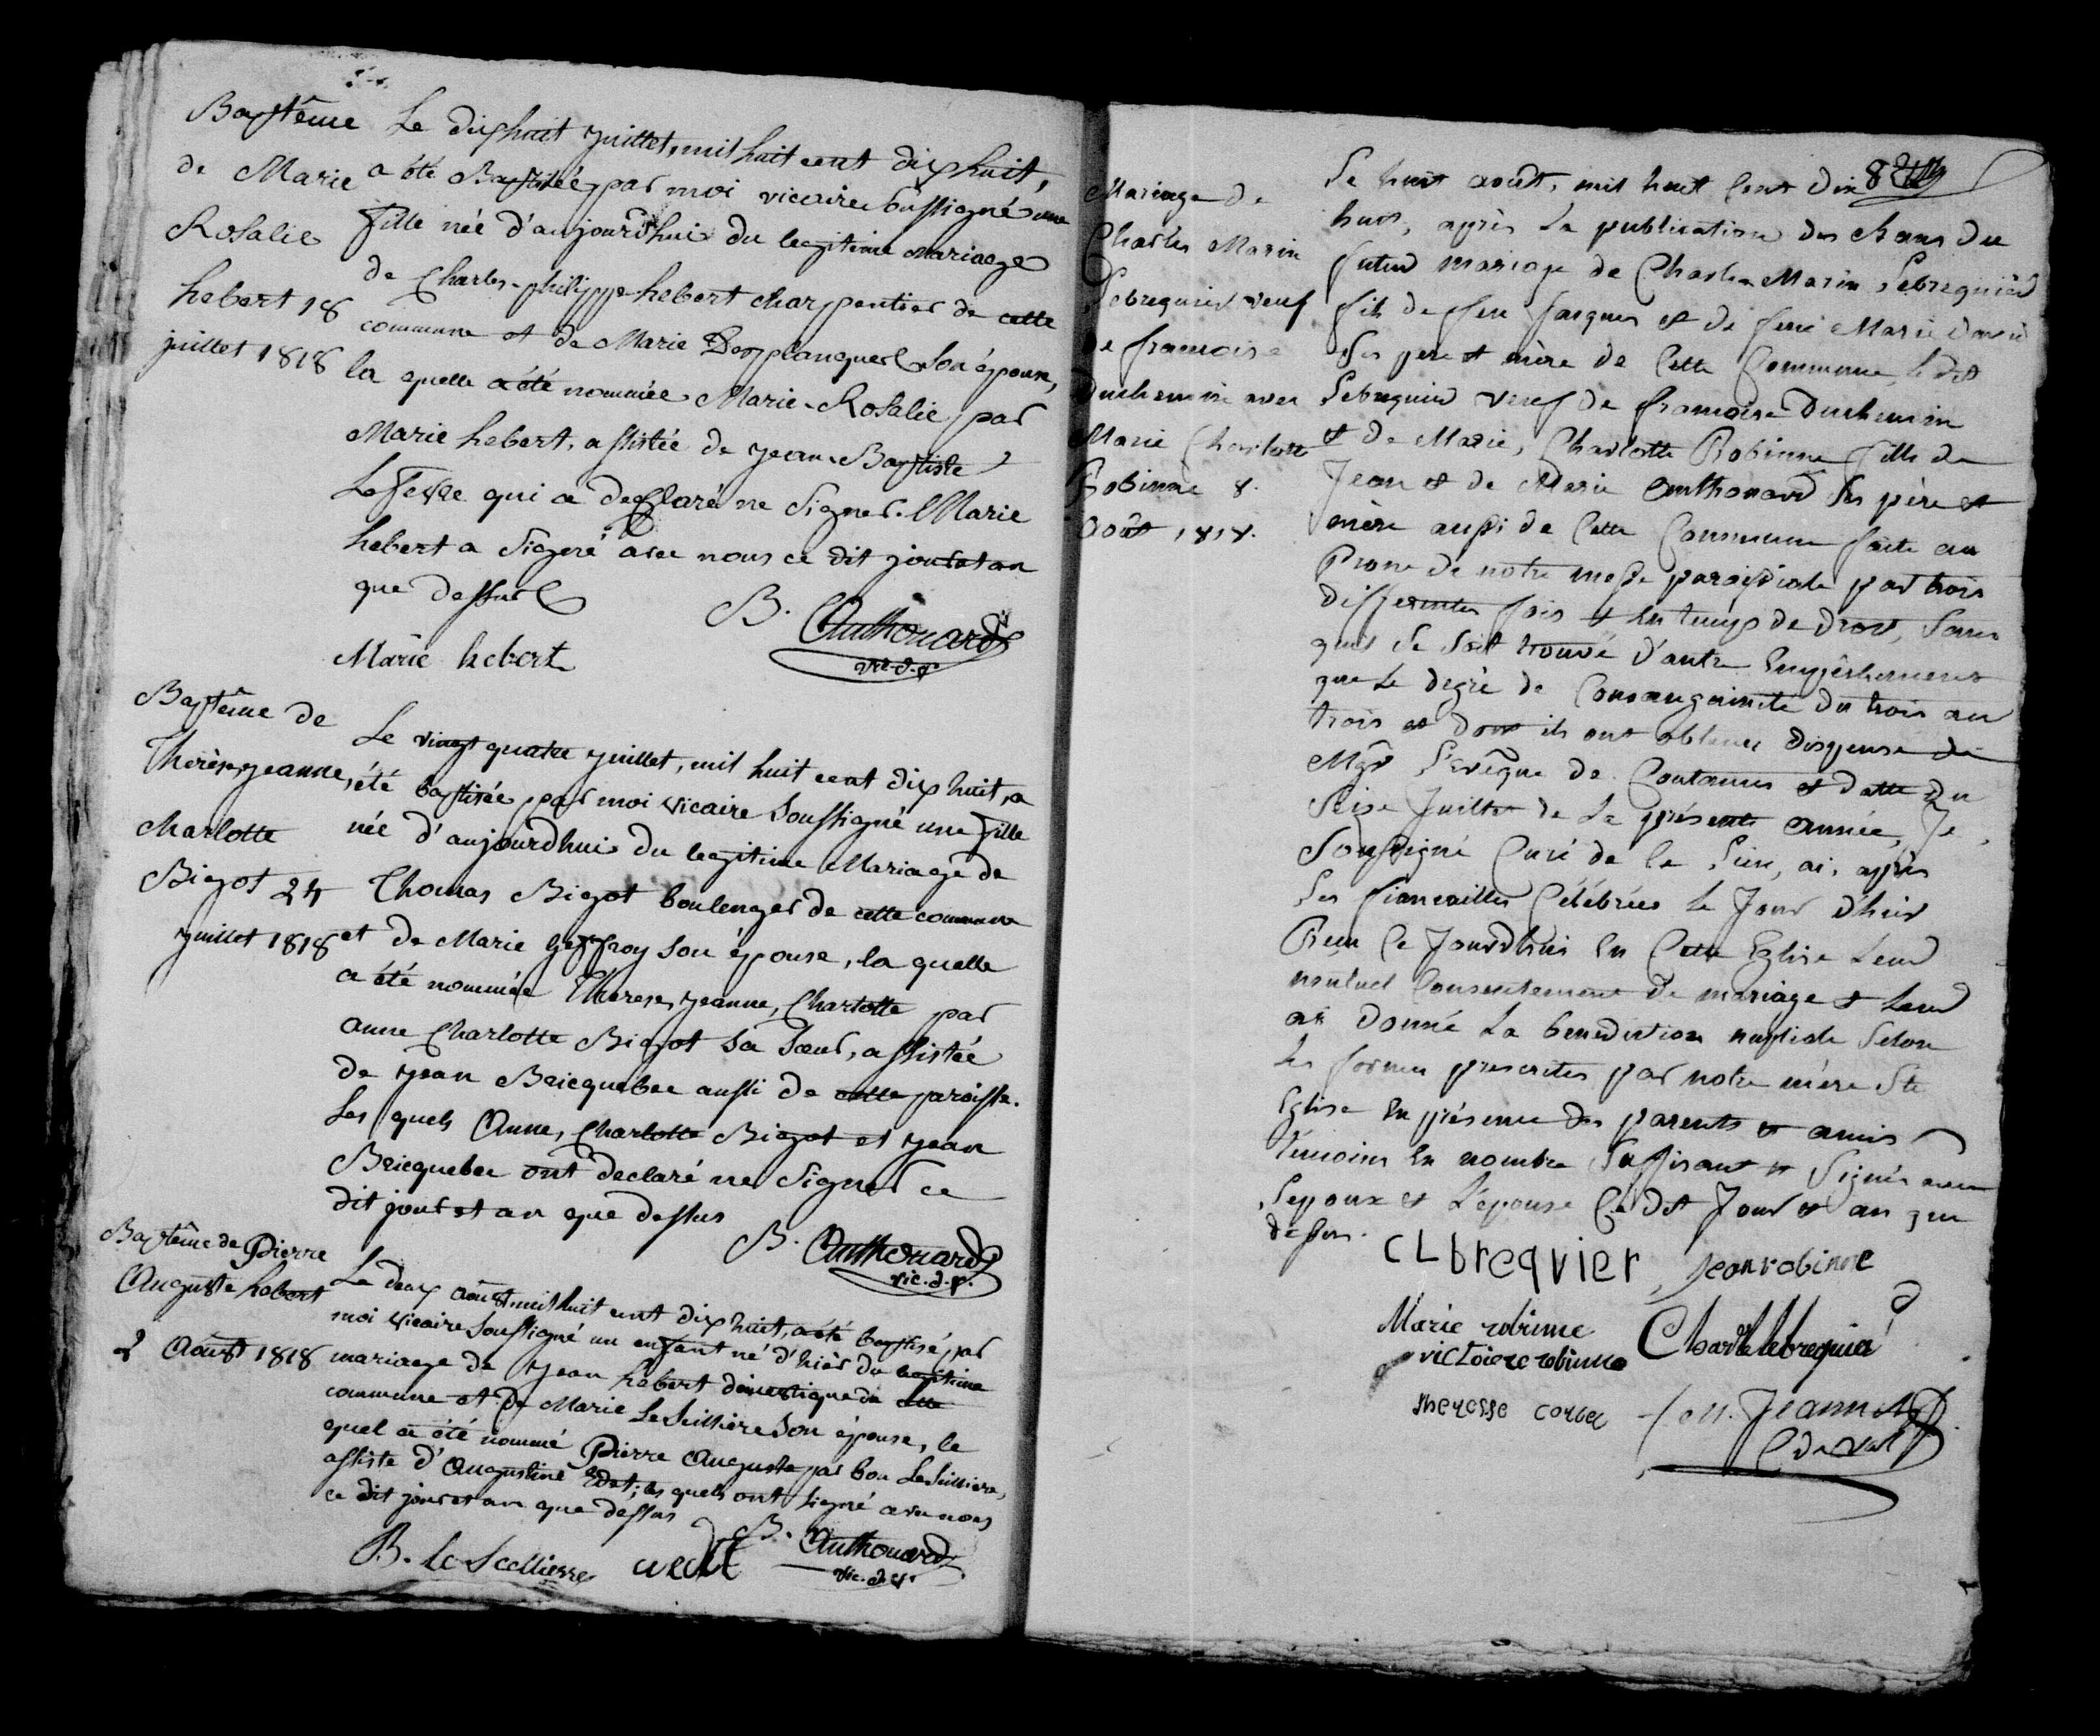 Baptême
de Marie
Rosalie
hebert 18
juillet 1818
Le dixhuit juillet, mil huit cent dix huit,
a été Baptisée par moi vicaire soussigné une
fille née d'aujourd'hui du legitime Mariage
de Charles-philippe hebert charpentier de cette
commune et de Marie Desplanques son épouse,
la quelle a été nommée Marie-Rosalie par
Marie hebert, assistée de jean-Baptiste
Lefevre qui a declaré ne signer. Marie
hebert a signé avec nous ce dit jour et an
que dessus
B. Authouard
vic. d. p.
Marie hebert
Baptême de
Thérèse, jeanne,
charlotte
Bigot 24
juillet 1818
Le vingt quatre juillet, mil huit cent dix huit, a
été baptisée par moi vicaire soussigné une fille
née d'aujourdhui du legitime Mariage de
Thomas Bigot boulenger de cette commune
et de Marie Geffroy son épouse, la quelle
a été nommée Therese, jeanne, Charlotte par
anne Charlotte Bigot sa sœur, assistée
de jean Bricquebec aussi de cette paroisse.
Les quels Anne, Charlotte Bigot et jean
Bricquebec ont declaré ne signer ce
dit jour et an que dessus
B. Authouard
vic. d. p.
Baptême de Pierre
Auguste hebert
2 Aoust 1818
Le deux aoust mil huit cent dix huit, a été baptisé, par
moi vicaire soussigné un enfant né d'hier du legitime
mariage de jean hebert domestique de cette
commune et de Marie Le Sellière son épouse, le
quel a été nommé Pierre Auguste par bon Le Sellière,
assisté d'Augustine Edet; les quels ont signé avec nous
ce dit jour et an que dessus
B. Le Scellierre B. Authouard
vic. d. p.
8
Mariage de
Charles Marin
Lebrequier veuf
de francoise
Duchemin avec
Marie Charlotte
Robinne 8.
Août 1818.
Le huit août, mil huit cent dix
huit, après la publication des bans du
futur mariage de Charles Marin Lebrequier
fils de feu Jacques et de feue Marie
ses pere et mère de cette Commune, le dit
Lebrequier veuf de francoise Duchemin
et de Marie, Charlotte Robinne fille de
Jean et de Marie Authouard ses père et
mère aussi de cette Commune faite au
Prone de notre messe paroissiale par trois
differentes fois et en temps de droit, sans
qu'il se soit trouvé d'autre Empêchement
que le degré de Consanguinité du trois au
trois et dont ils ont obtenu dispense de
Mgr L'evêque de Coutances et datte du
seize Juillet de la présente année, Je
soussigné Curé de le Lieu, ai, après
les fiancailles Célébrées le Jour d'hier
Reçu ce Jourdhui en cette Eglise leur
mutuel Consentement de mariage et leur
ai donné la benediction nuptiale selon
les formes prescrites par notre mère Ste
Eglise en présence des parents et amis
témoins en nombre suffisant et signés avec
l'epoux et l'épouse ce dit Jour et an que
dessus.
CLbreqvier jean robinne
Marie robinne Charle lebrequier
victoiere robinne
theresse corbel